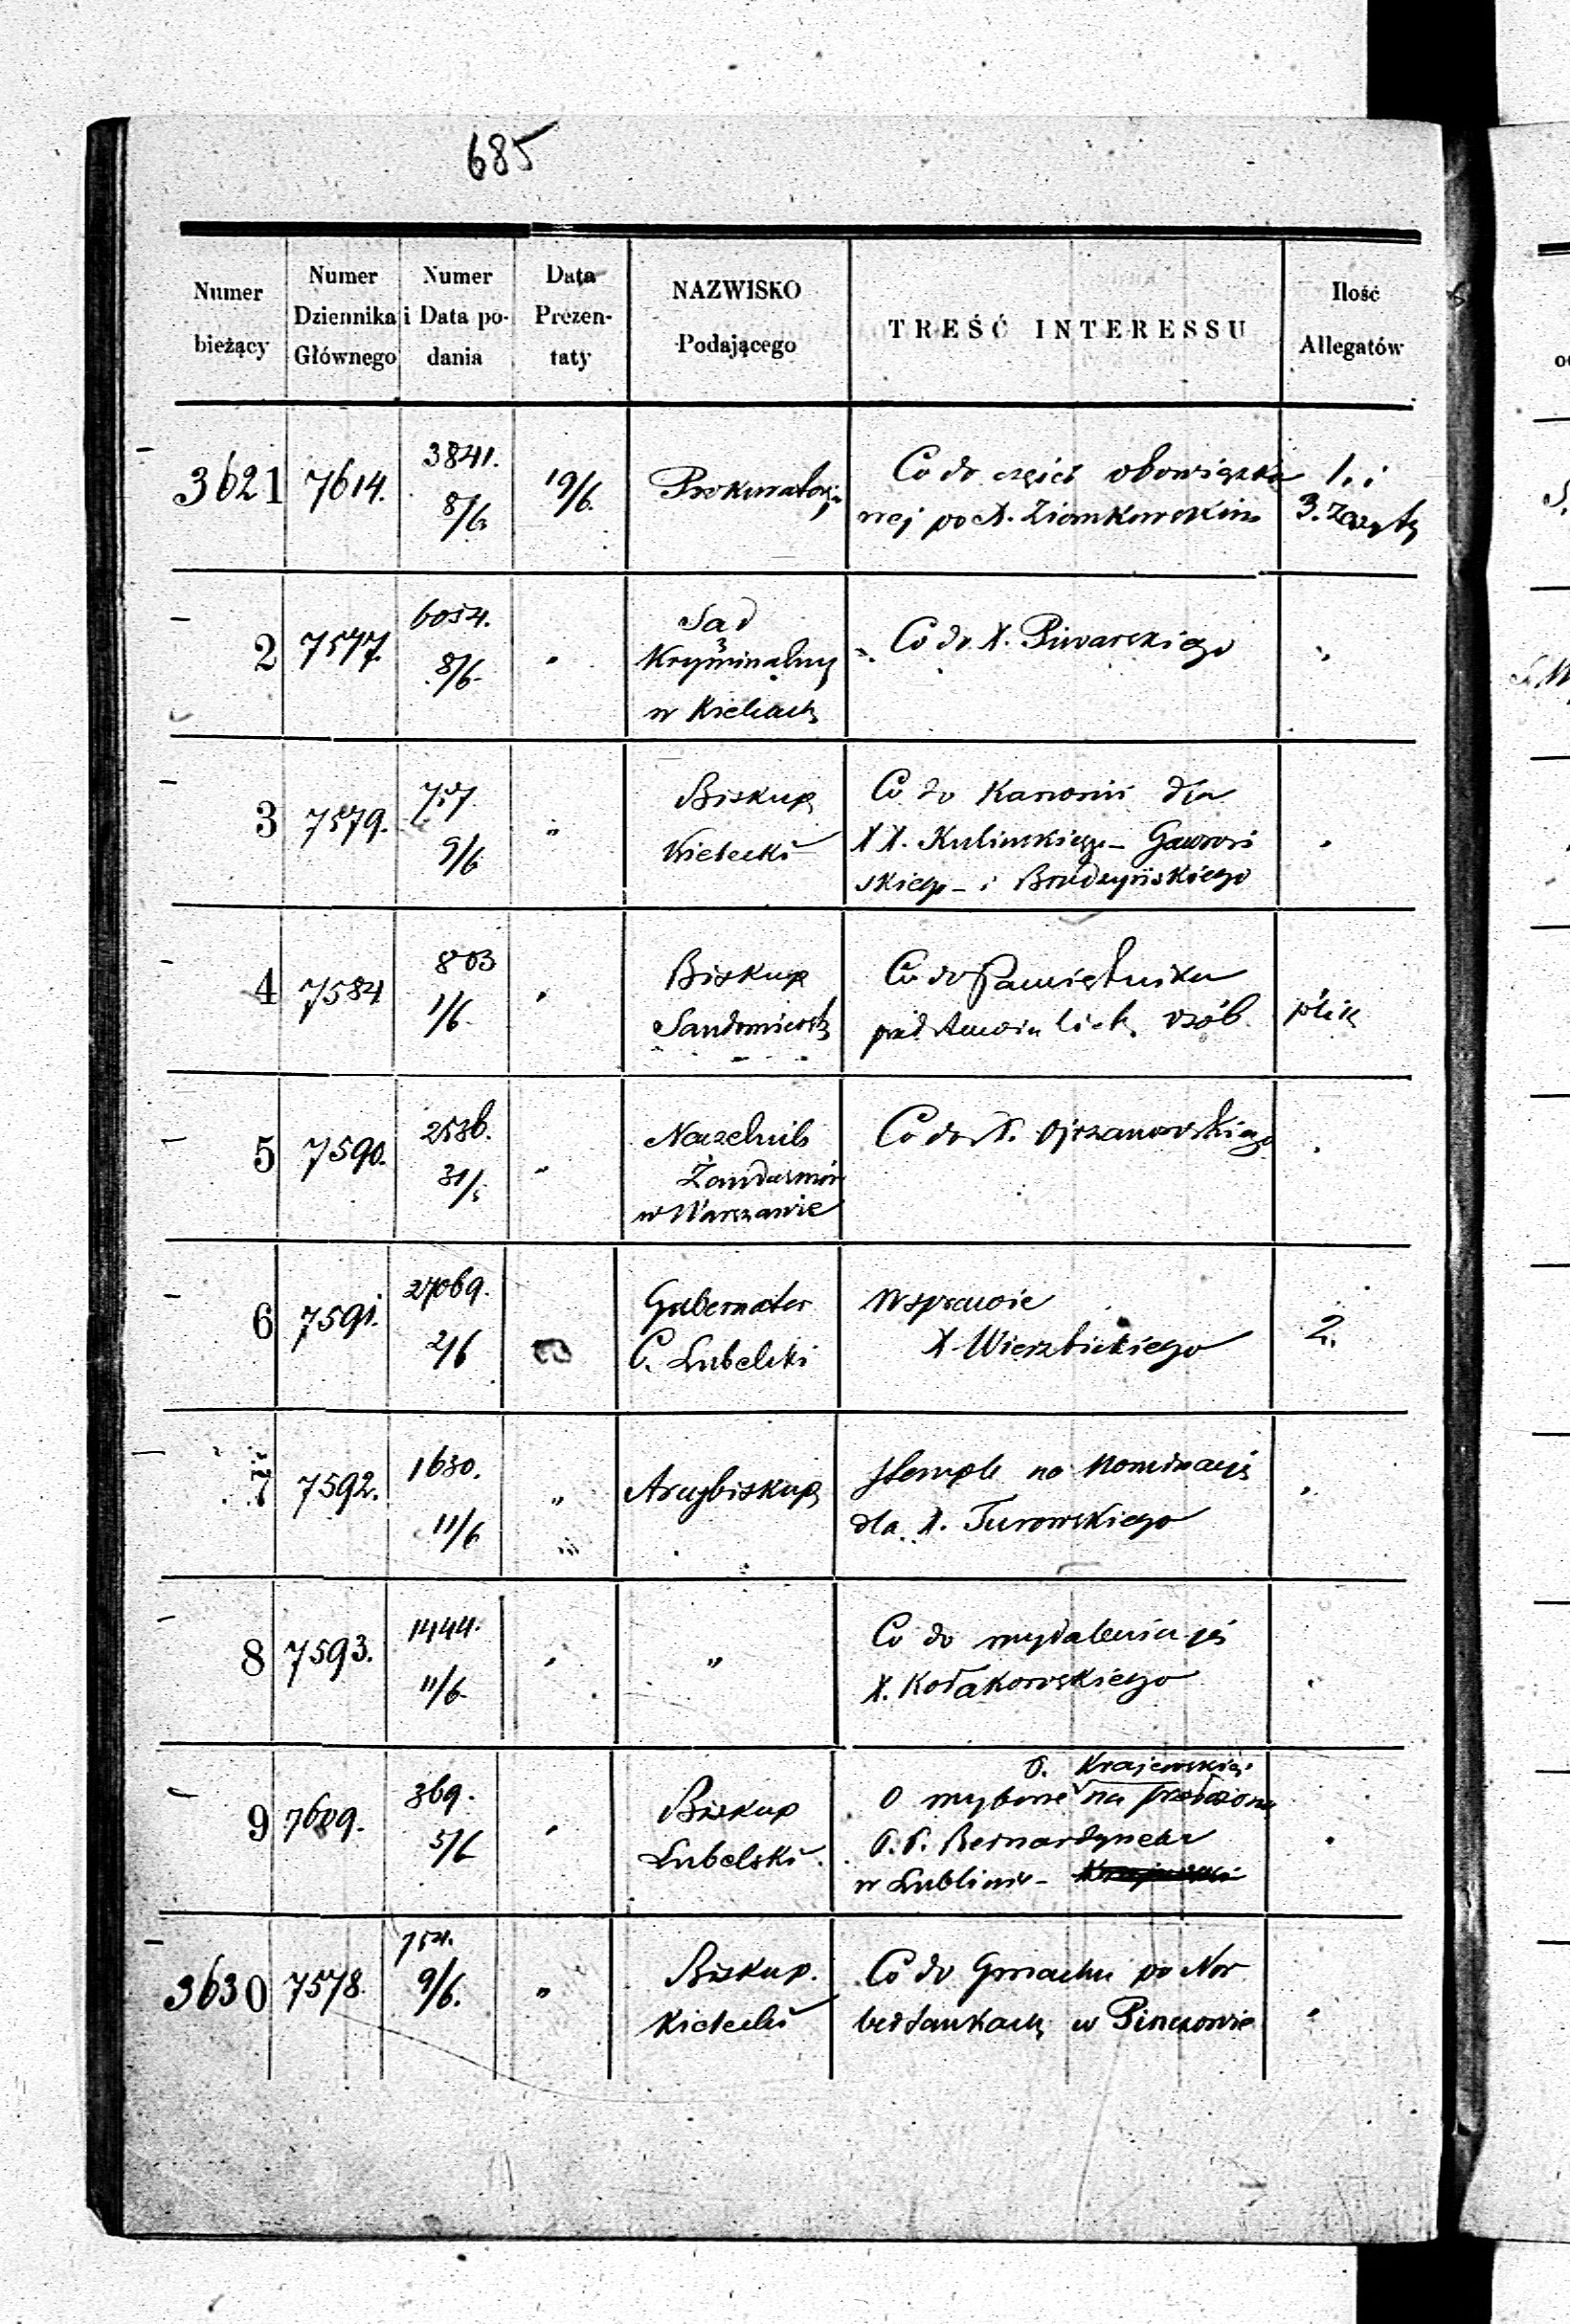 685
Numer bieżący | Numer Dziennika Głównego | Numer i Data podania | Data Prezentaty | NAZWISKO Podającego | TREŚĆ INTERESSU | Ilość Allegatów
3621 7614. 3841. 8/6 19/6. Prokuratorja Co do części obowiązko 1. i
wej po X. Ziomkowskim 3. Zeszyty
2 7577. 6054. 8/6 " Sąd
Kryminalny
w Kielcach
Co do X. Piwarskiego "
3 7579. 757 9/6 " Biskup
Kielecki
Co do Kanonii dla
XX. Kulinskiego – Gawroń
skiego – i Brudzyńskiego "
4 7584 803 1/6 " Biskup
Sandomierski
Co do Pamiętnika
osób. plik
5 7590. 2536. 31/5 " Naczelnik
Żandarmów
w Warszawie
Co do X. Ojrzanowskiego "
6 7591. 27069. 2/6 Gubernator
C. Lubelski
W sprawie
X Wierzbickiego 2.
7 7592. 1630. 11/6 " Arcybiskup
Stemple na Nominacyę
dla X. Turowskiego "
8 7593. 1444. 11/6 " "
Co do wydalenia się
X. Kołakowskiego "
9 7609. 369. 5/6 " Biskup
Lubelski
O. Krajewskiego
O wyborze na przełożonego
O.O. Bernardynów
w Lublinie – "
3630 7578. 754. 9/6. " Biskup.
Kielecki
Co do Gmachu po Nor
bertankach w Pinczowie "